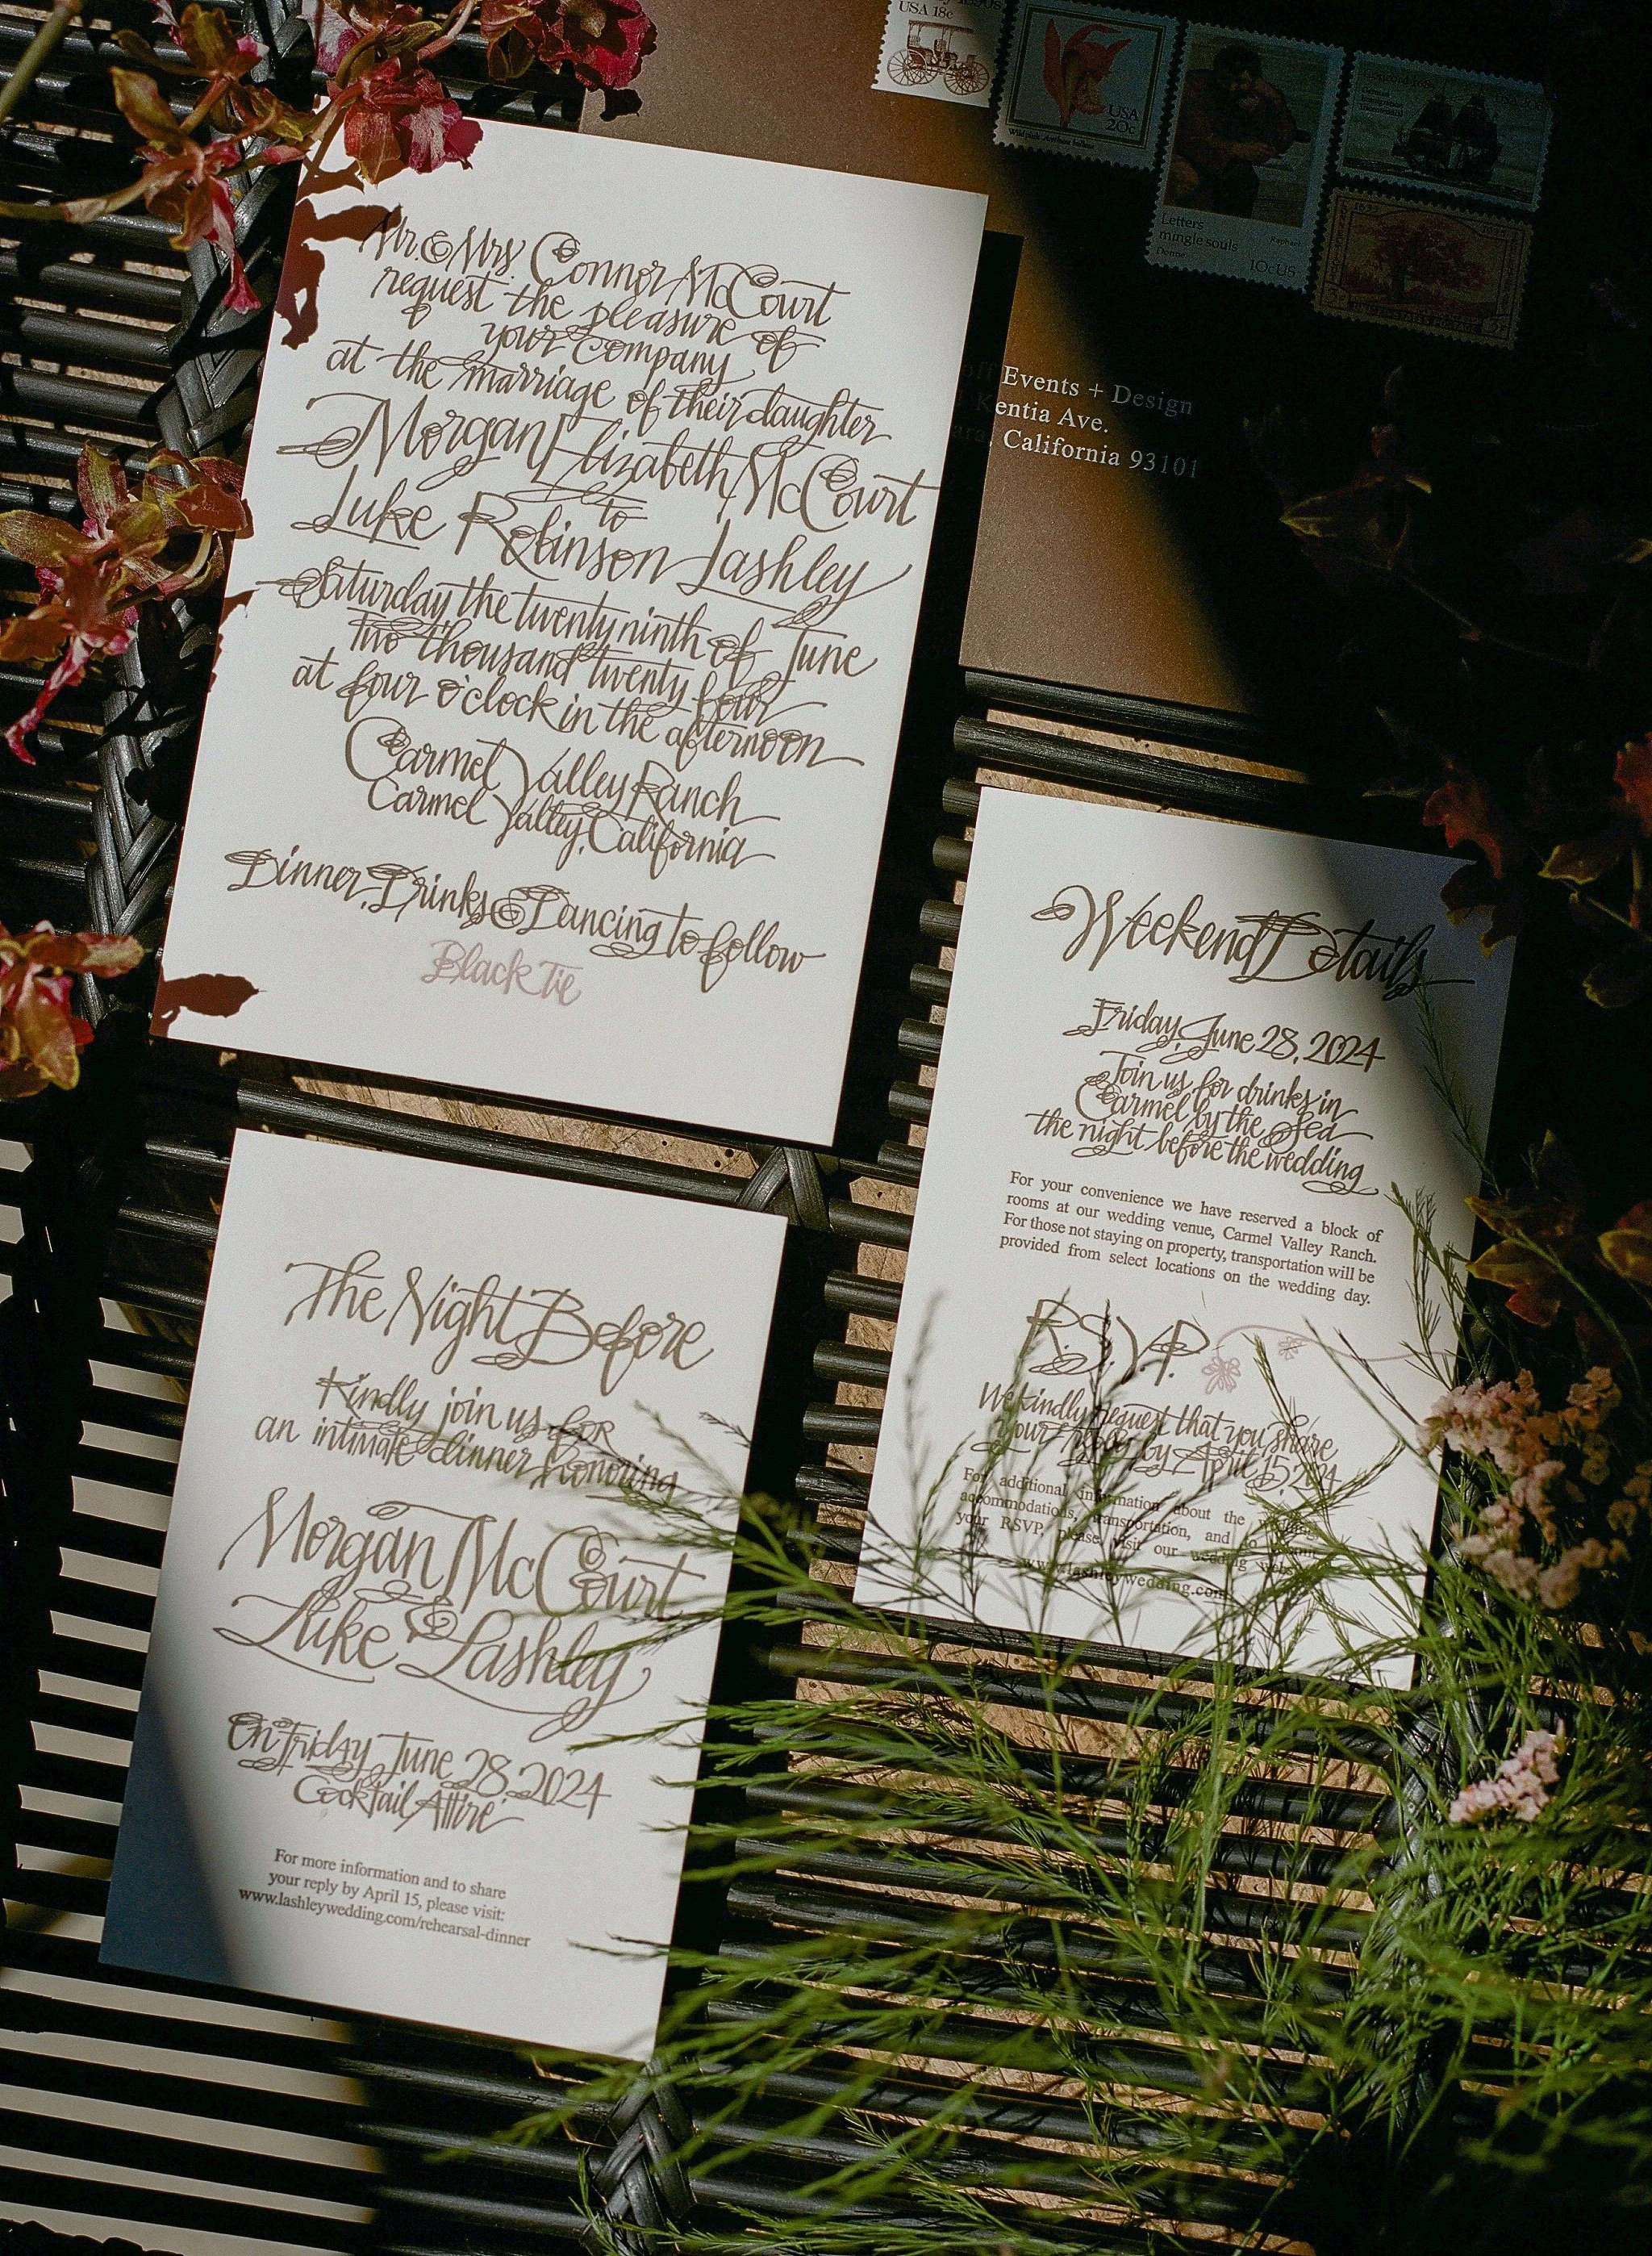 Mr. & Mrs. Connor McCourt
request the pleasure of
your company
at the marriage of their daughter
Morgan Elizabeth McCourt
to
Luke Robinson Lashley
Saturday the twenty ninth of June
two thousand twenty four
at four o'clock in the afternoon
Carmel Valley Ranch
Carmel Valley, California
Dinner, Drinks & Dancing to follow
Black Tie
USA 18c
USA
20c
Letters
mingle souls
Donne
Raphael
10c US
Events + Design
Kentia Ave.
California 93101
Weekend Details
Friday, June 28, 2024
Join us for drinks in
Carmel by the Sea
the night before the wedding
For your convenience we have reserved a block of
rooms at our wedding venue, Carmel Valley Ranch.
For those not staying on property, transportation will be
provided from select locations on the wedding day.
R.S.V.P.
We kindly request that you share
your reply by April 15, 2024
For additional information about the
accommodations, transportation, and to
your RSVP, please visit our wedding
www.lashleywedding.com
The Night Before
Kindly join us for
an intimate dinner honoring
Morgan McCourt
&
Luke Lashley
On Friday, June 28, 2024
Cocktail Attire
For more information and to share
your reply by April 15, please visit:
www.lashleywedding.com/rehearsal-dinner